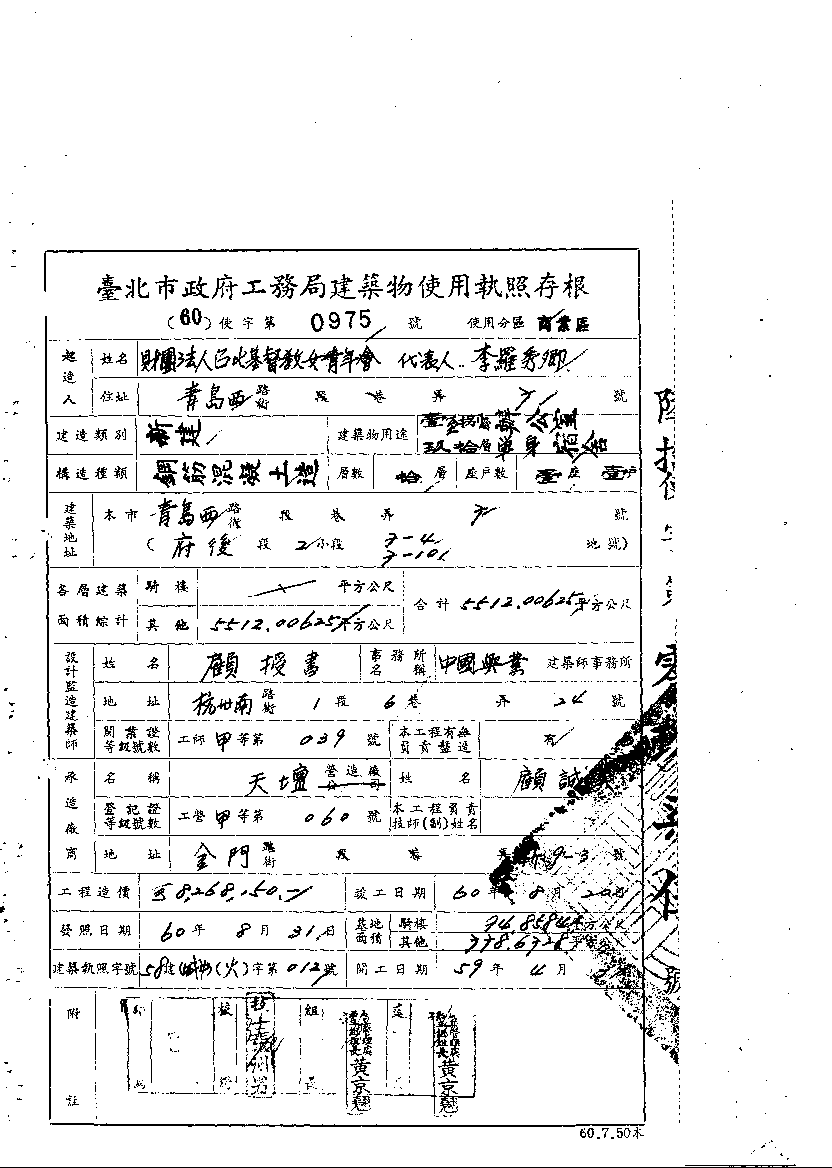 臺北市政府工務局建築物使用執照存根
(60)使字第 0975 號 使用分區 商業區
起造人 姓名 財團法人台北基督教女青年會 代表人 李羅秀卿
住址 青島西 路街 段 巷 弄 7 號
建造類別 新建 建築物用途 辦公室
玖拾層單身宿舍
構造種類 鋼筋混凝土造 層數 拾層 座戶數 壹座 壹戶
建築地址 本市 青島西 路街 段 巷 弄 7 號
(府後 段 2小段 7-4 地號)
7-101
各層建築面積綜計 騎樓 平方公尺 合計 5512.00625平方公尺
其他 5512.00625平方公尺
設計監造建築師 姓名 顧授書 事務所名稱 中國興業 建築師事務所
地址 杭州南 路街 1段 6巷 弄 24 號
開業證等級號數 工師 甲 等第 039 號 本工程有無負責監造 有
承造廠商 名稱 天壇 營造廠公司 姓名 顧誠
登記證等級號數 工營 甲 等第 060 號 本工程負責技師(副)姓名
地址 金門 路街 段 巷 弄 9-3 號
工程造價 8,268,150.- 竣工日期 60年 8月 20日
發照日期 60年 8月 31日 基地面積 騎樓 平方公尺
其他 平方公尺
建築執照字號 58建( )(火)字第012號 開工日期 59年 4月
附註 組長 黃京 黃京
60.7.50本